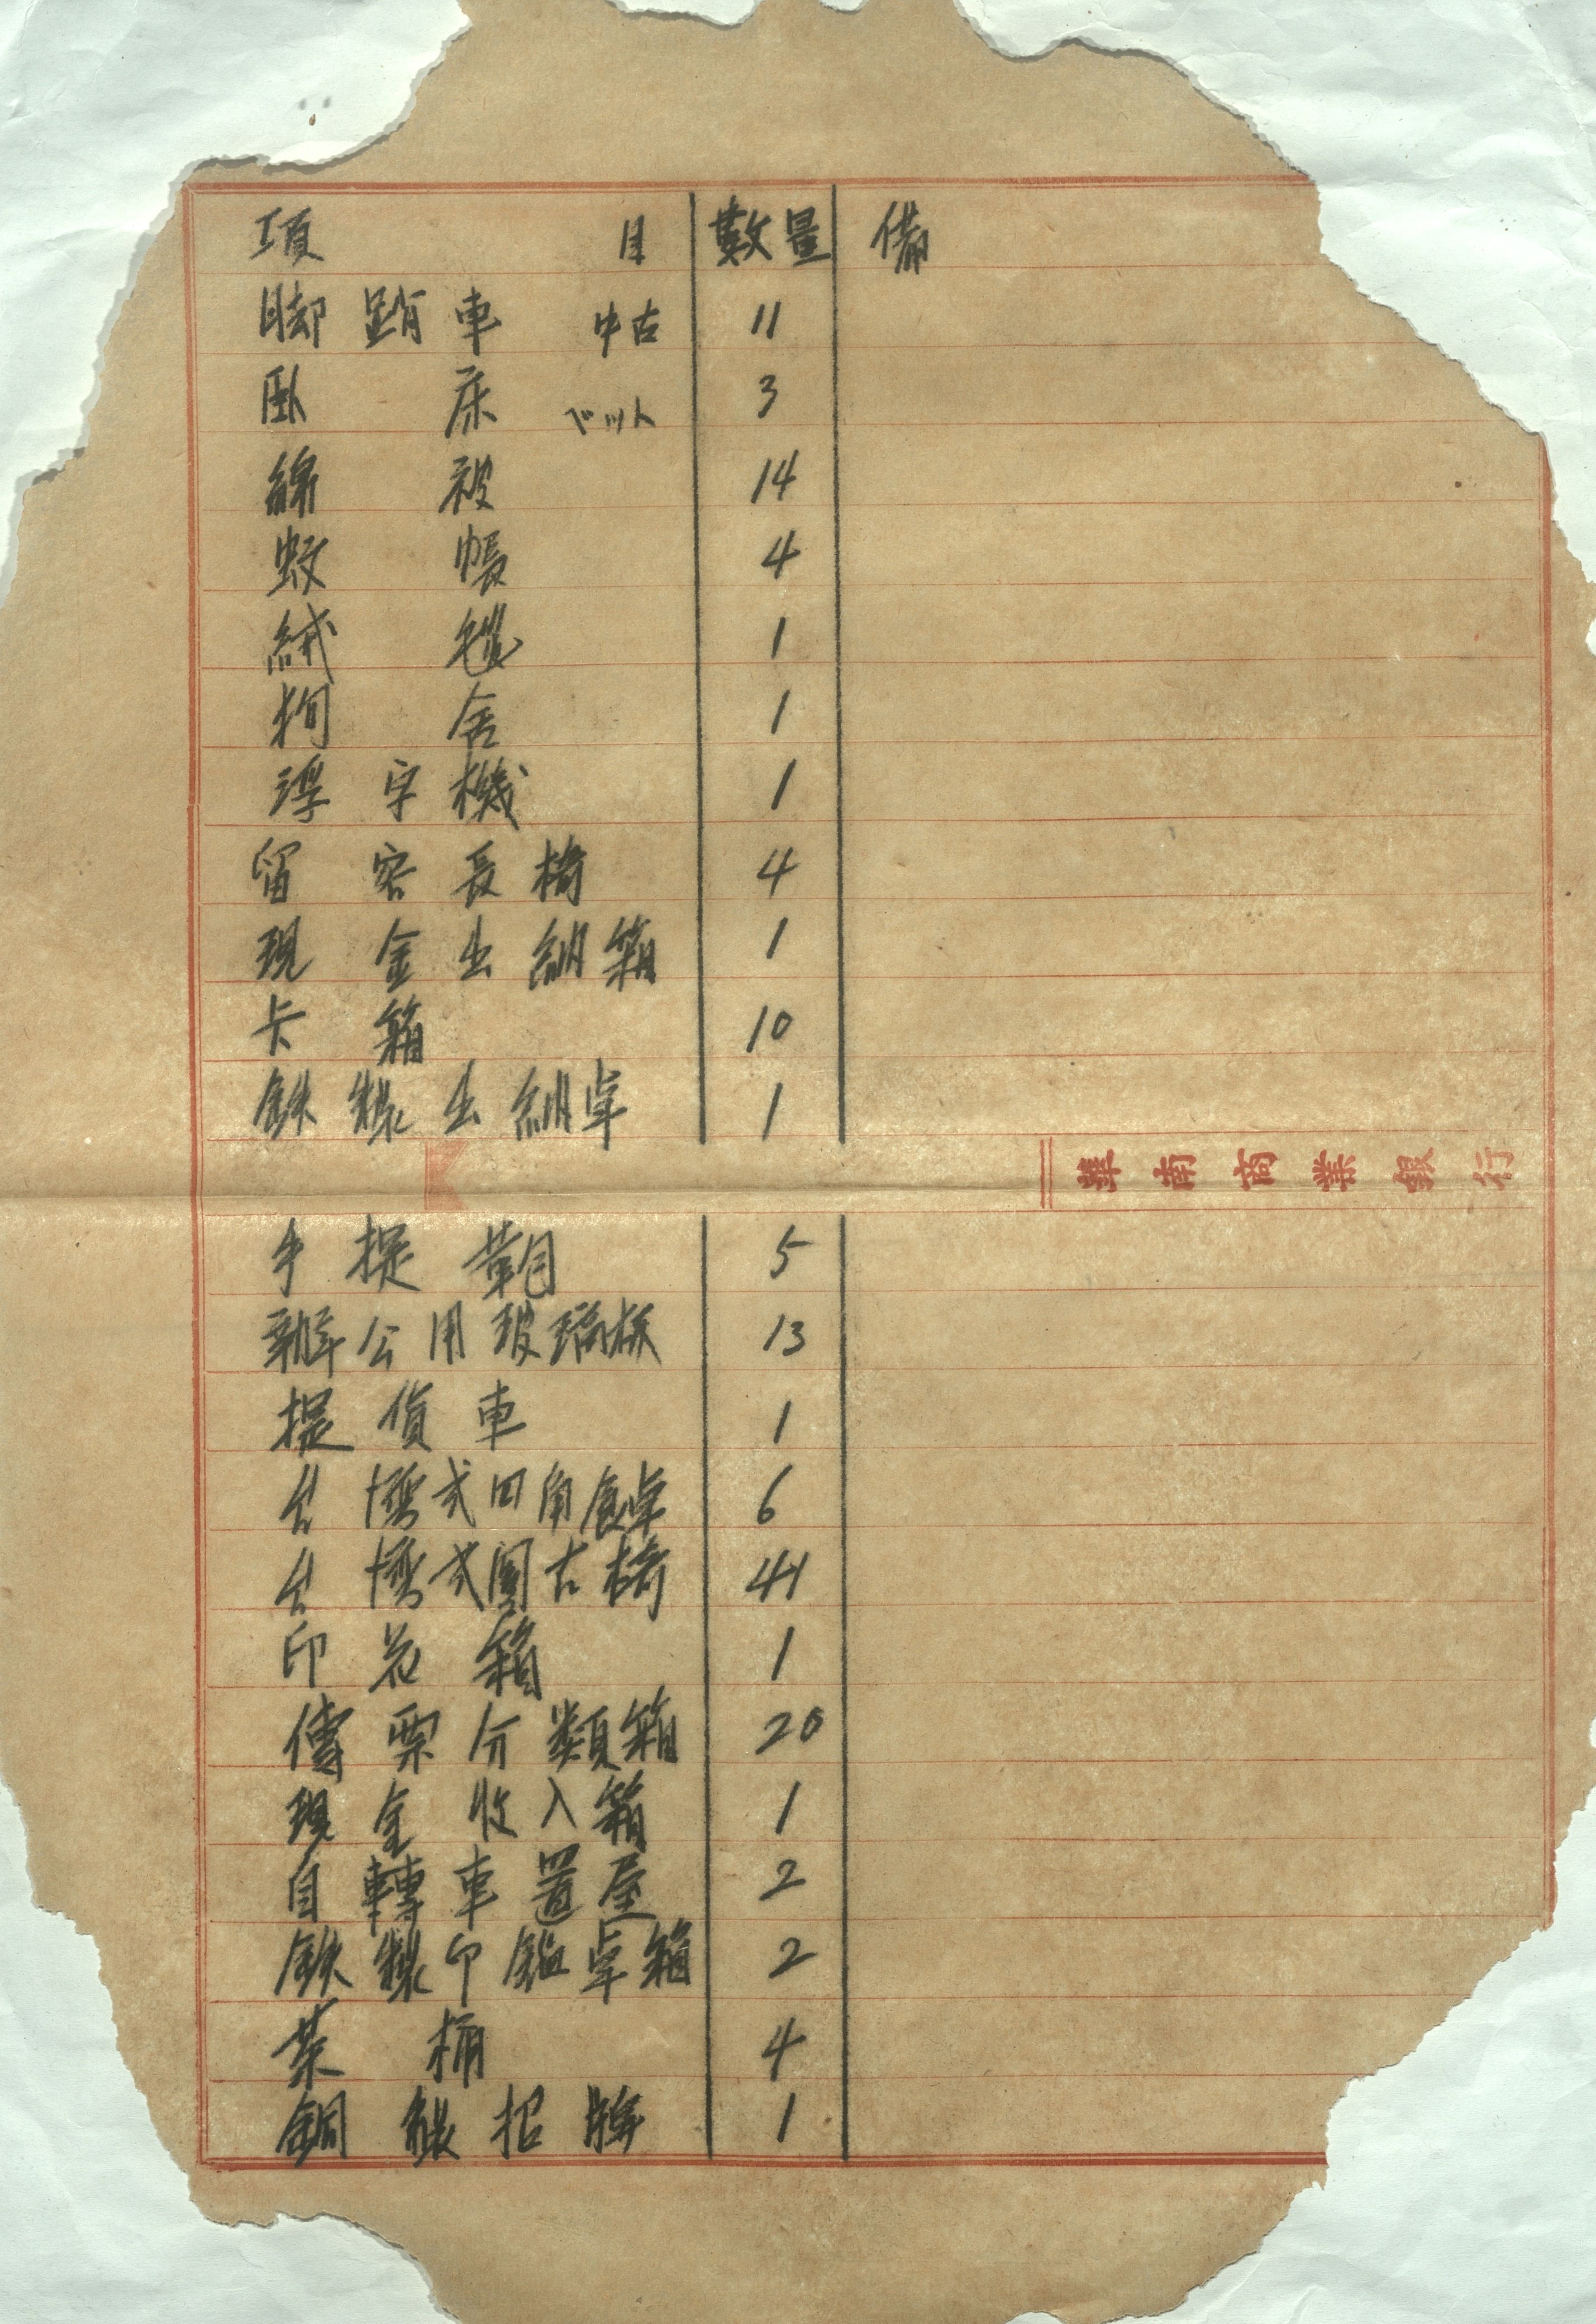 項目 數量 備
脚踏車 中古 11
臥床 ベット 3
綿被 14
蚊帳 4
絨毯 1
狗舍 1
浮字機 1
留客長椅 4
現金出納箱 1
卡箱 10
鉄製出納卓 1
華南商業銀行
手提 5
辦公用玻璃板 13
提貨車 1
台灣式四角食卓 6
台灣式圓古椅 41
印花箱 1
傳票分類箱 20
現金收入箱 1
自轉車置屋 2
鉄製印鑑卓箱 2
茶桶 4
銅製招牌 1